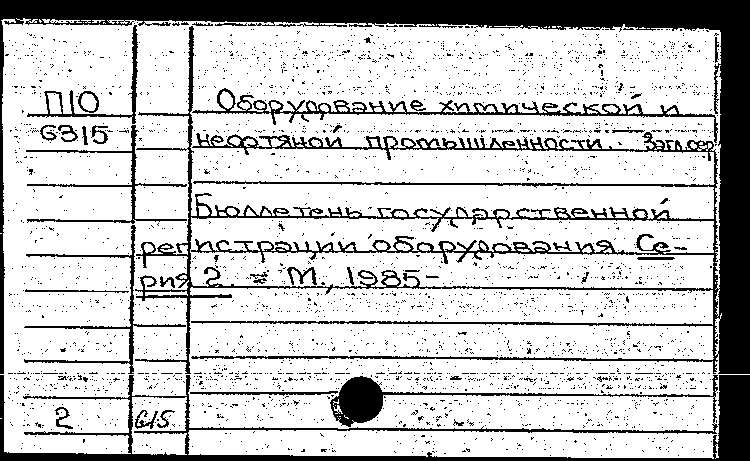 П10
Оборудование химической и
G315
нефтяной промышленности. Загл.сер.
Бюллетень государственной
регистрации оборудования. Се-
рия 2. = М., 1985-
2
G15